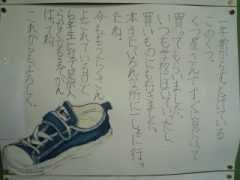 一年前からずっとはいている
このくつ。
くつ屋さんですぐに気にいって
買ってもらいました。
いつも学校にはいていったし、
買いものにも行きました。
本当にいろんな所に一しょに行っ
たね。
今ももうたくさん
よごれているけど
6年生になって足が入
らなくなるまでがん
ばってね。
これからもよろしく。